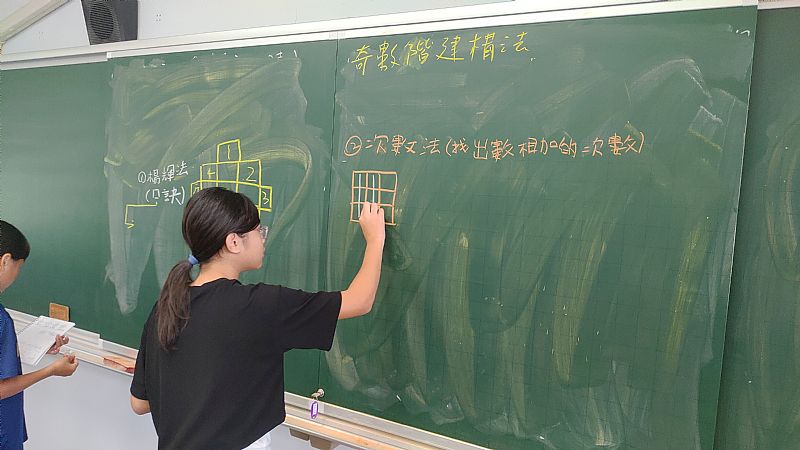 奇數階建構法
①楊輝法
(口訣)
1
4 2
3
②次數文法(找出數相加的次數)